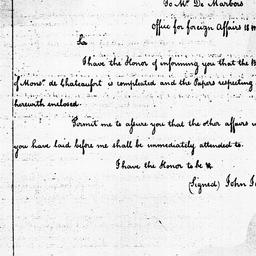 To Mr. De Marbois
Office for foreign Affairs 18
Sir
I have the Honor of informing you that the
of Monsr. de Chateaufort is compleated and the Papers respecting
herewith enclosed.
Permit me to assure you that the other affairs
you have laid before me shall be immediately attended to.
I have the Honor to be &c
(Signed) John